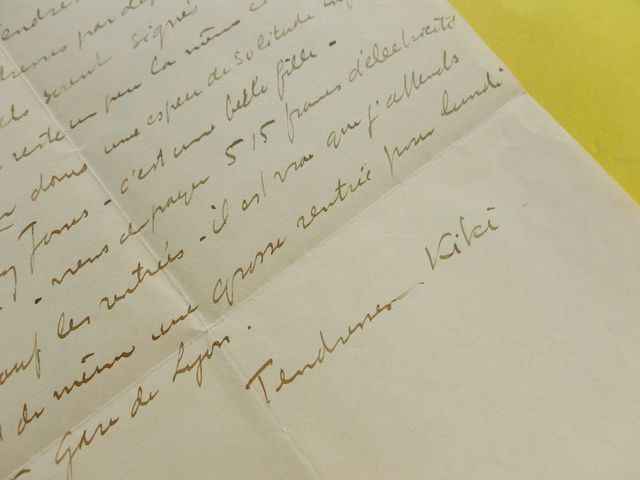 par dep
seront signés
reste un peu la même c
dans une espèce de solitude
Jones - c'est une belle fille -
- viens de payer 515 francs d'électricité
sauf les rentrées - il est vrai que j'attends
de même une grosse rentrée pour lundi
Gare de Lyon.
Tendresses Kiki